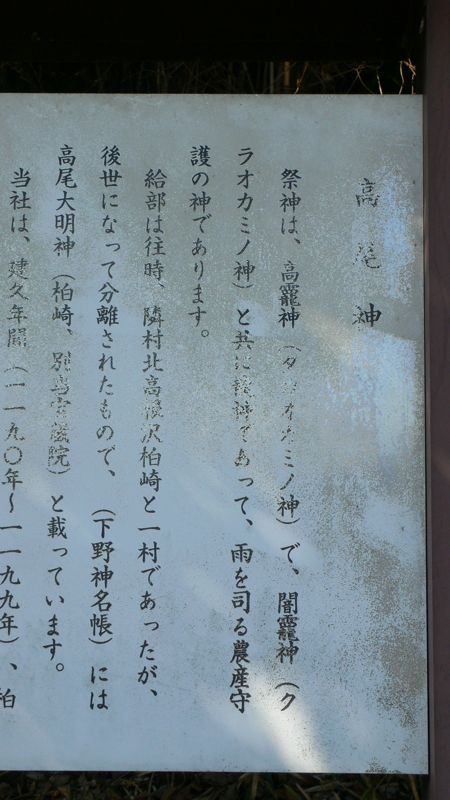 高尾神
祭神は、高龗神（タカオカミノ神）で、闇龗神（ク
ラオカミノ神）と共に龍神であって、雨を司る農産守
護の神であります。
給部は往時、隣村北高根沢柏崎と一村であったが、
後世になって分離されたもので、（下野神名帳）には
高尾大明神（柏崎、別当宝蔵院）と載っています。
当社は、建久年間（一一九〇年～一一九九年）、柏